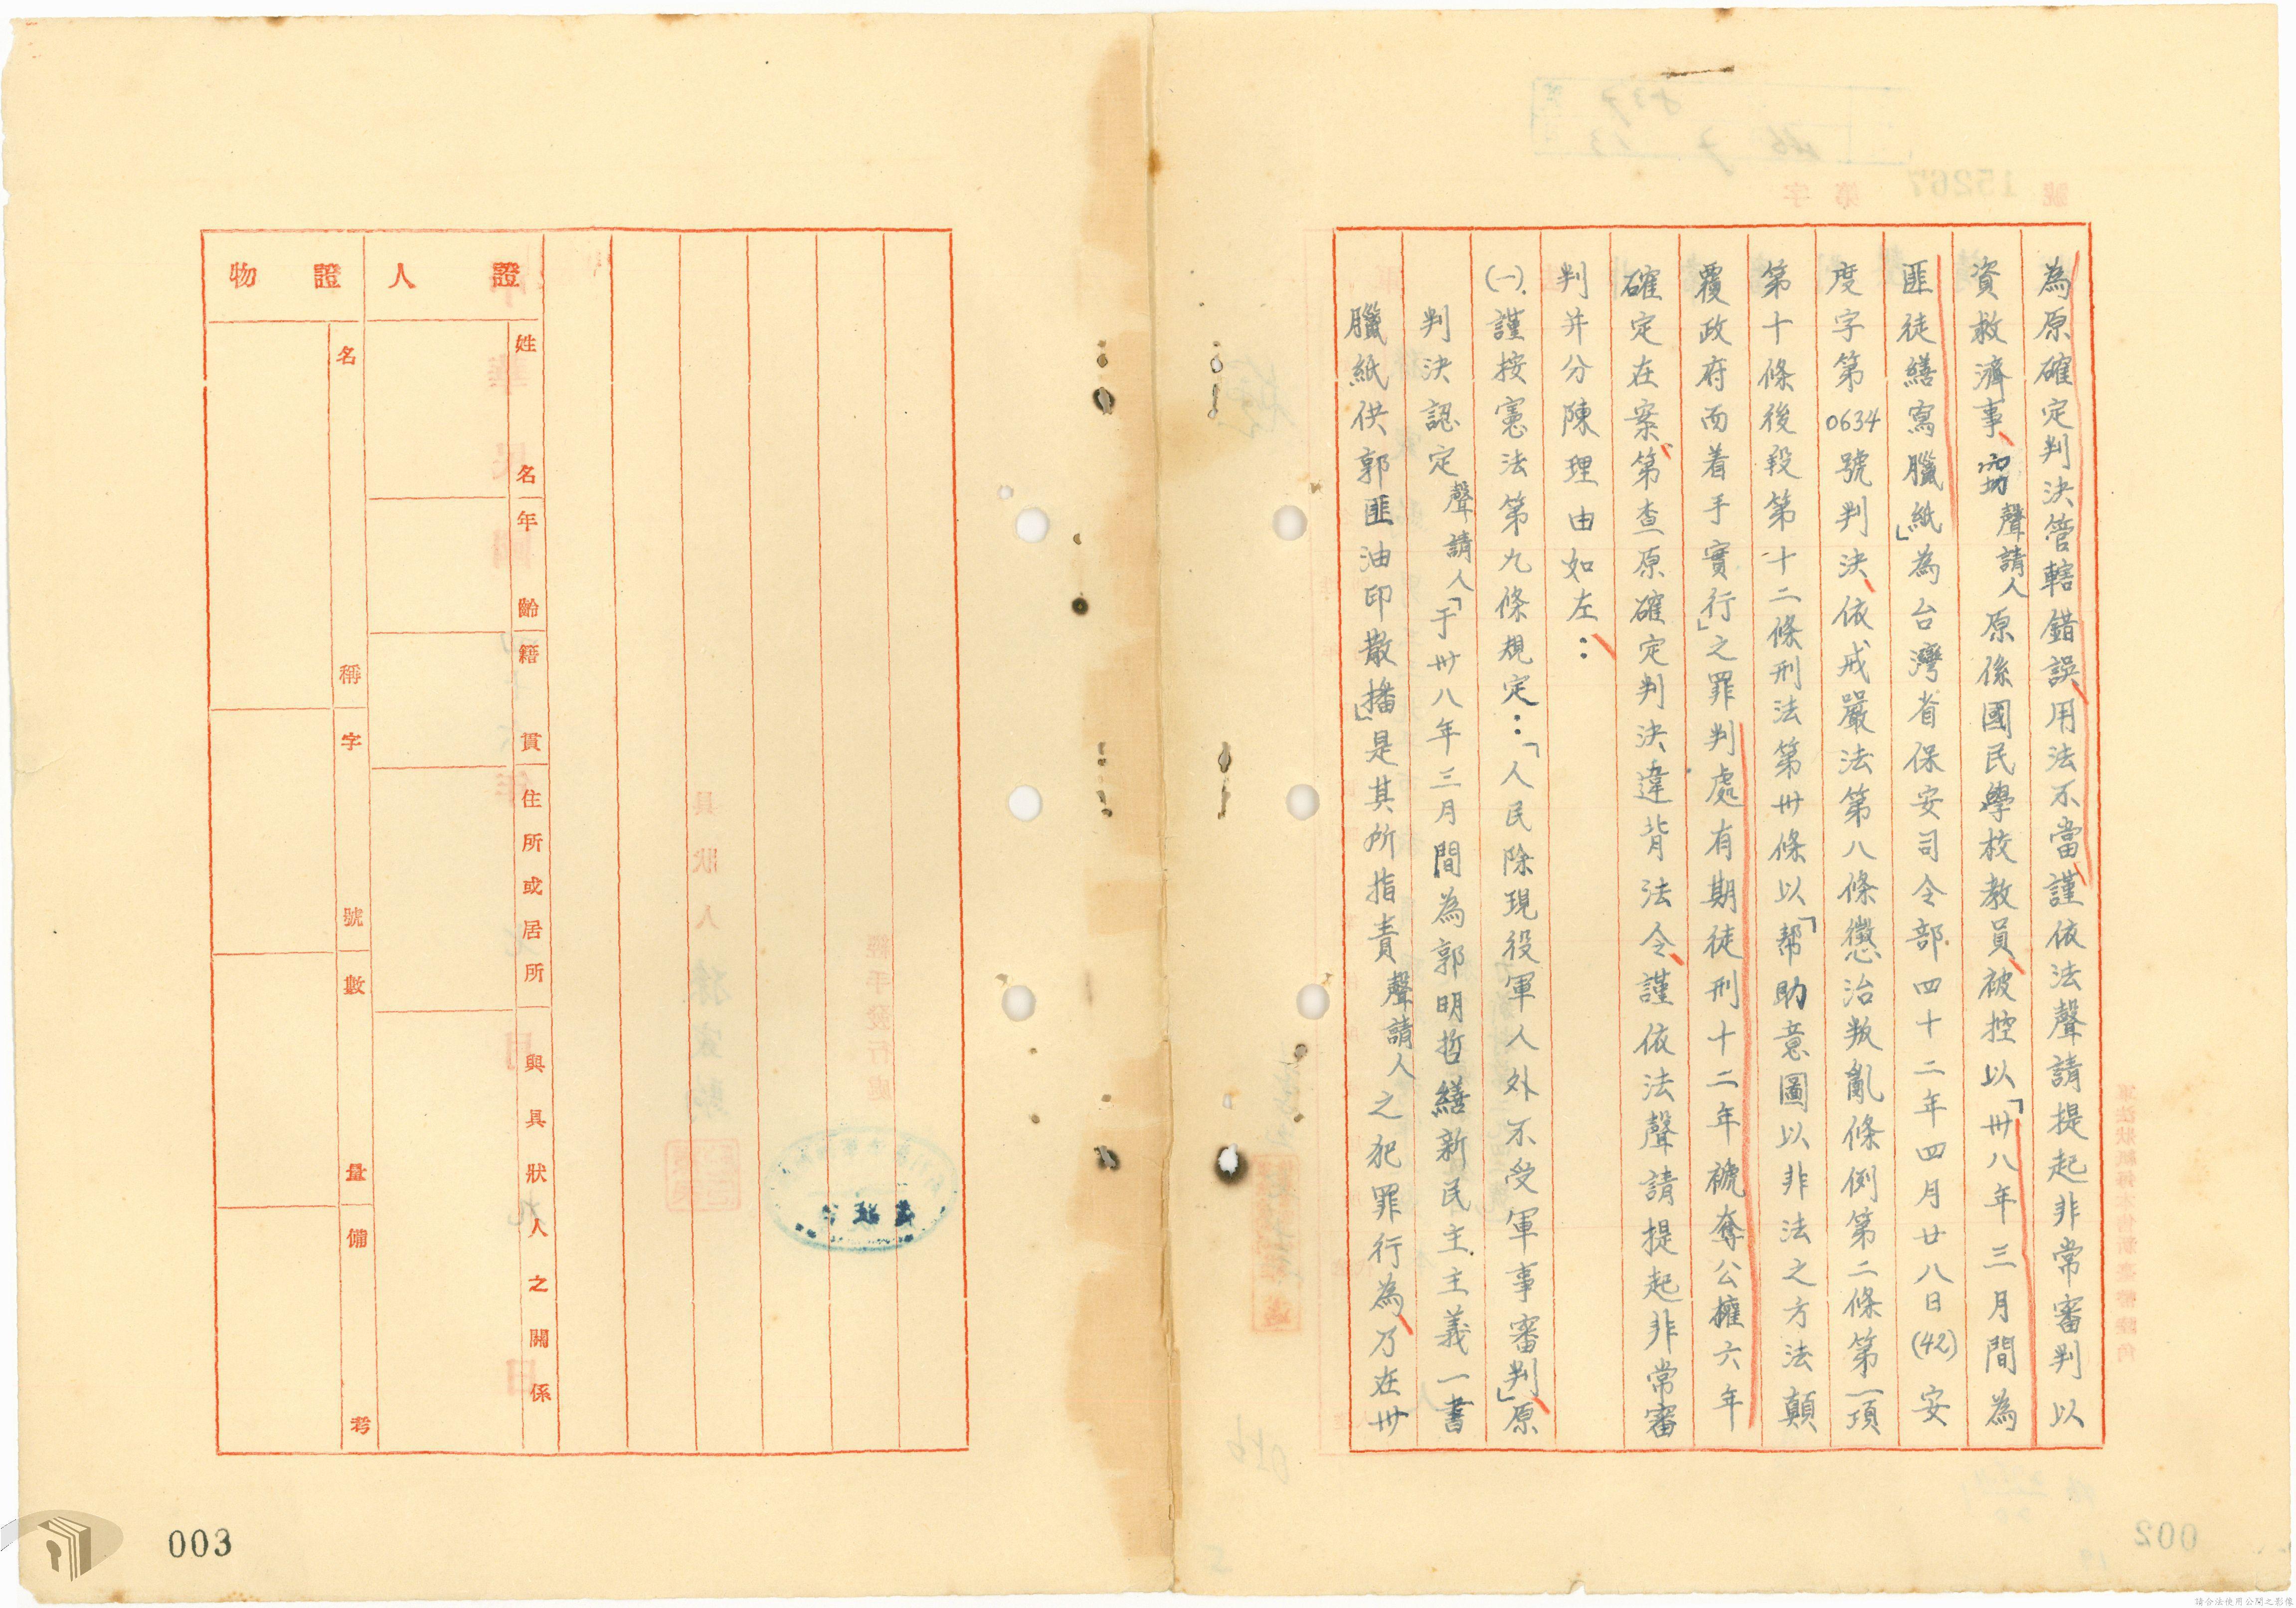 為原確定判決管轄錯誤用法不當謹依法聲請提起非常審判以
資救濟事竊聲請人原係國民學校教員被控以「卅八年三月間為
匪徒繕寫臘紙」為台灣省保安司令部四十二年四月廿八日(42)安
度字第0634號判決依戒嚴法第八條懲治叛亂條例第二條第一項
第十條後段第十二條刑法第卅條以「幇助意圖以非法之方法顛
覆政府而着手實行」之罪判處有期徒刑十二年褫奪公權六年
確定在案第查原確定判決違背法令謹依法聲請提起非常審
判并分陳理由如左:
(一).謹按憲法第九條規定:「人民除現役軍人外不受軍事審判」原
判決認定聲請人「于卅八年三月間為郭明哲繕新民主主義一書
臘紙供郭匪油印散播」是其所指責聲請人之犯罪行為乃在卅
證人
姓名
年齡
籍貫
住所或居所
與具狀人之關係
證物
名稱
字號
數量
備考
003
002
15267
請合法使用公開之影像